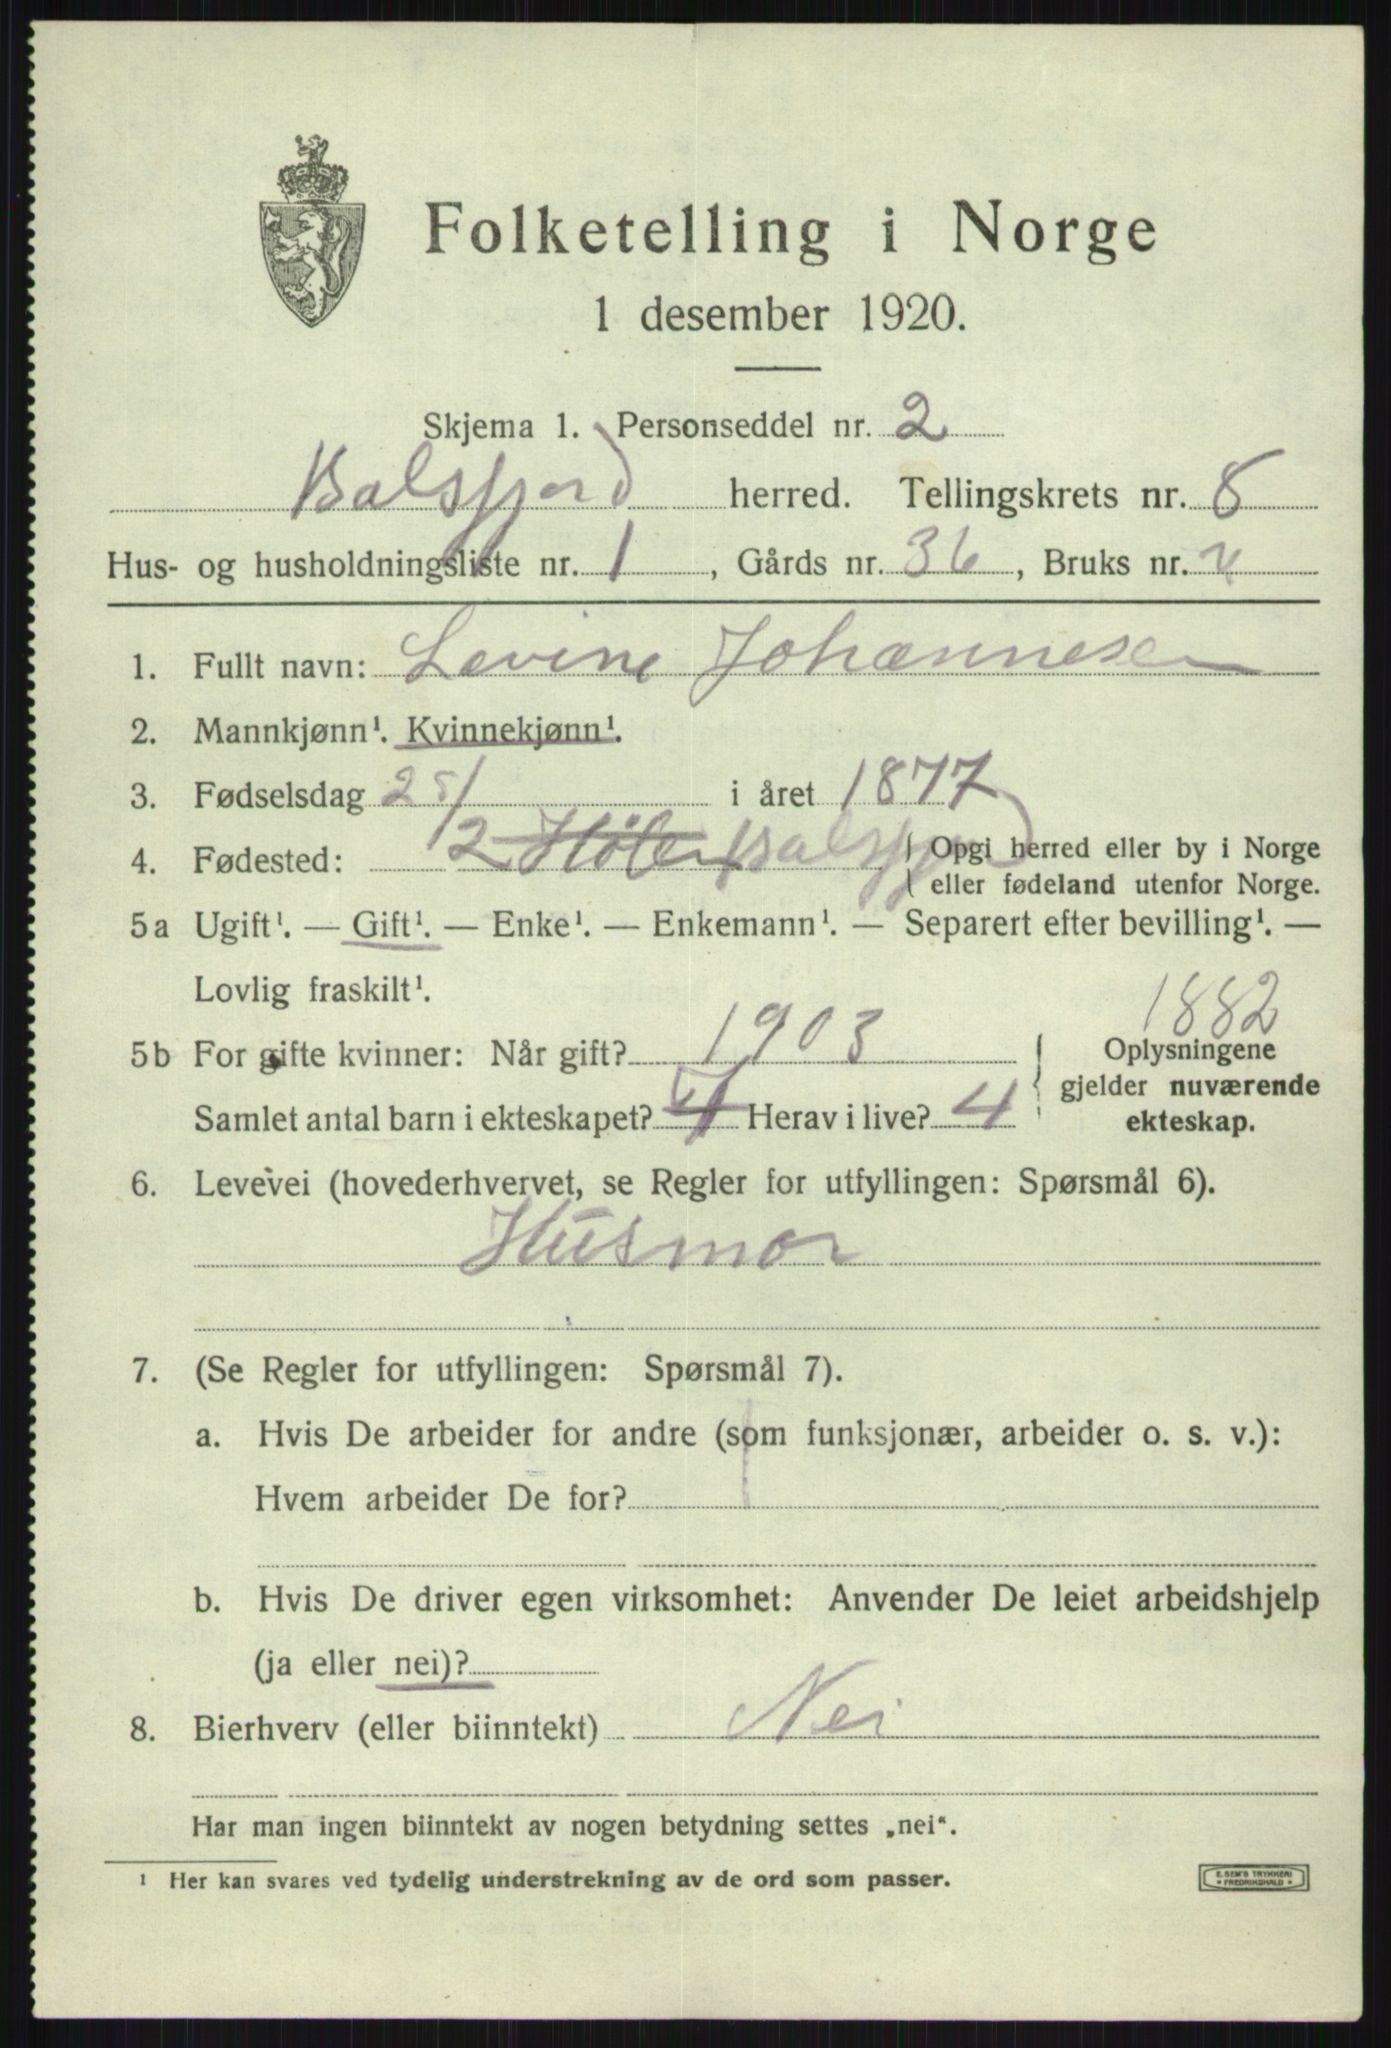 Folketelling i Norge
1 desember 1920.
Skjema 1. Personseddel nr. 2
Balsfjord herred. Tellingskrets nr. 8
Hus- og husholdningsliste nr. 1, Gårds nr. 36, Bruks nr.
1. Fullt navn: Levine Johannesen
2. Mannkjønn¹. Kvinnekjønn¹.
3. Fødselsdag 25/2 i året 1877
4. Fødested: Balsfjord Opgi herred eller by i Norge
eller fødeland utenfor Norge.
5a Ugift¹. — Gift¹. — Enke¹. — Enkemann¹. — Separert efter bevilling¹. —
Lovlig fraskilt¹.
1882
5b For gifte kvinner: Når gift? 1903 Oplysningene
gjelder nuværende
Samlet antal barn i ekteskapet? Herav i live? 4 ekteskap.
6. Levevei (hovederhvervet, se Regler for utfyllingen: Spørsmål 6).
Husmor
7. (Se Regler for utfyllingen: Spørsmål 7).
a. Hvis De arbeider for andre (som funksjonær, arbeider o. s. v.):
Hvem arbeider De for?
b. Hvis De driver egen virksomhet: Anvender De leiet arbeidshjelp
(ja eller nei)?
8. Bierhverv (eller biinntekt) Nei
Har man ingen biinntekt av nogen betydning settes „nei“.
¹ Her kan svares ved tydelig understrekning av de ord som passer.
E. SEM'S TRYKKERI
* FREDRIKSHALD *